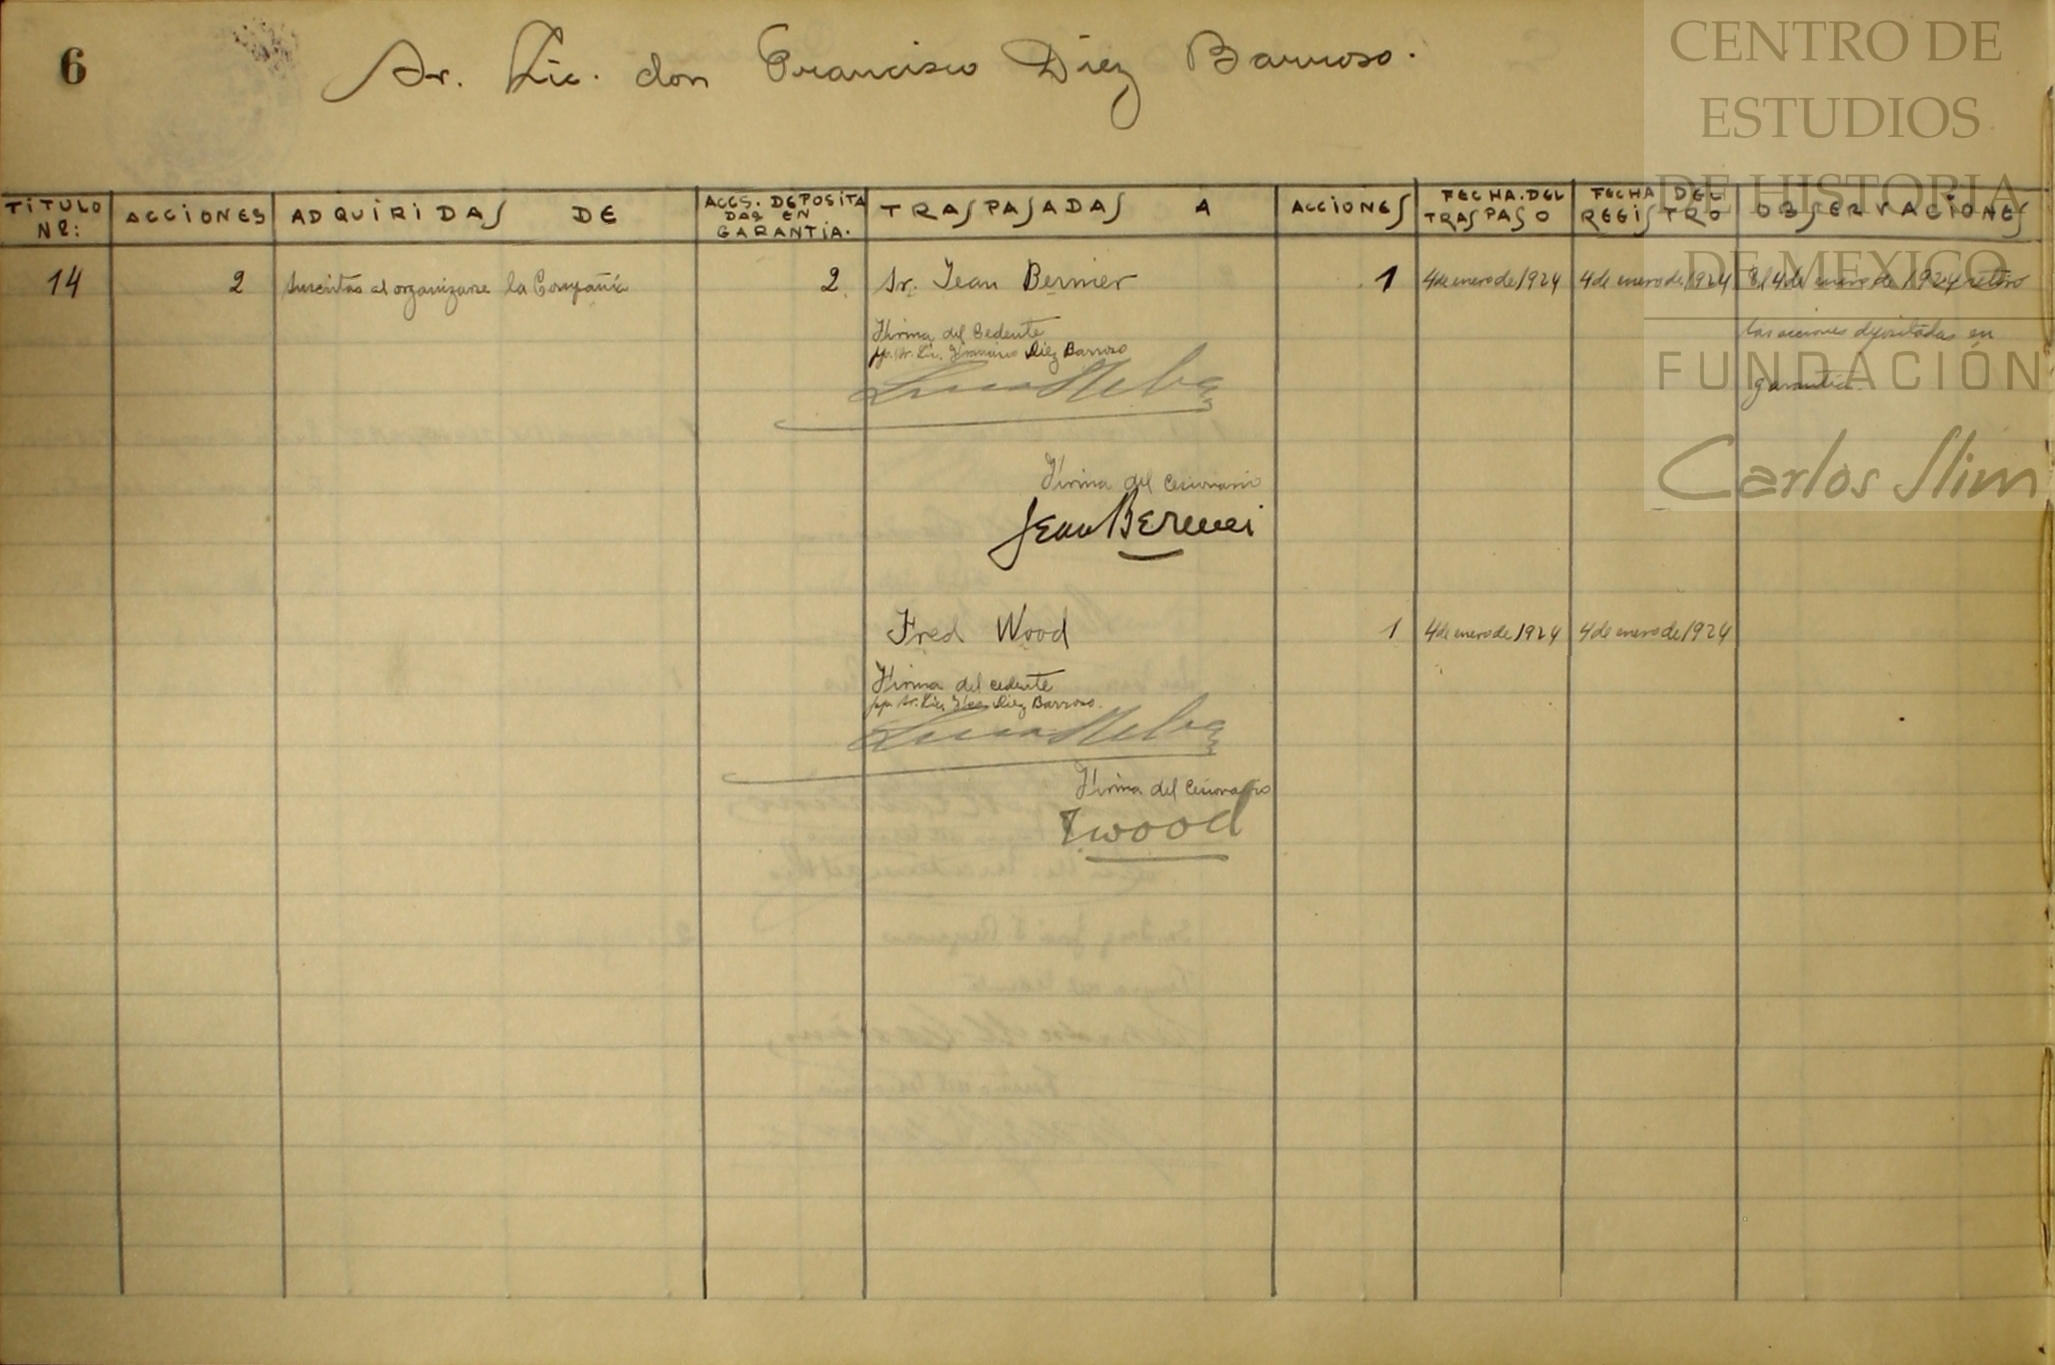 6
Sr. Lic. don Francisco Diez Barroso.
CENTRO DE
ESTUDIOS
DE HISTORIA
DE MEXICO
FUNDACIÓN
Carlos Slim
TITULO Nº:
ACCIONES
ADQUIRIDAS DE
ACCS. DEPOSITADAS EN GARANTIA.
TRASPASADAS A
ACCIONES
FECHA DEL TRASPASO
FECHA DEL REGISTRO
OBSERVACIONES
14
2
Suscritas al organizarse la Compañía
2
Sr. Jean Bernier
1
4 de enero de 1924
4 de enero de 1924
El 4 de enero de 1924 retiro
las acciones depositadas en
garantía.
Firma del Cedente
pp. Sr. Lic. Francisco Diez Barroso
Firma del Cesionario
Jean Bernier
Fred Wood
1
4 de enero de 1924
4 de enero de 1924
Firma del cedente
pp. Sr. Lic. Fco. Diez Barroso.
Firma del Cesionario
F Wood